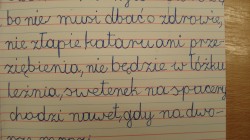 bo nie musi dbać o zdrowie,
nie złapie kataru ani prze-
ziębienia, nie będzie w łóżku
leżnia, swetenek na spacery
chodzi nawet, gdy na dwo-